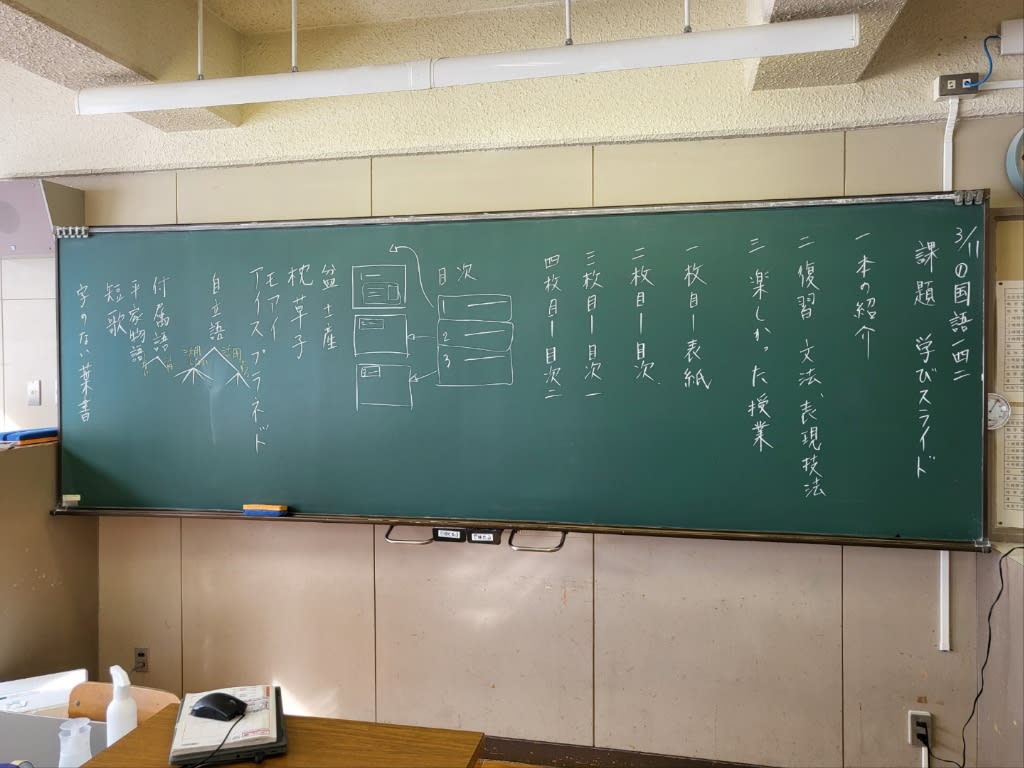 3/11の国語一四二
課題 学びスライド
一 本の紹介
二 復習 文法、表現技法
三 楽しかった授業
一枚目ー表紙
二枚目ー目次
三枚目ー目次一
四枚目ー目次二
目次
2
3
盆土産
枕草子
モアイ
アイスプラネド
自立語
付属語
平家物語
短歌
字のない葉書